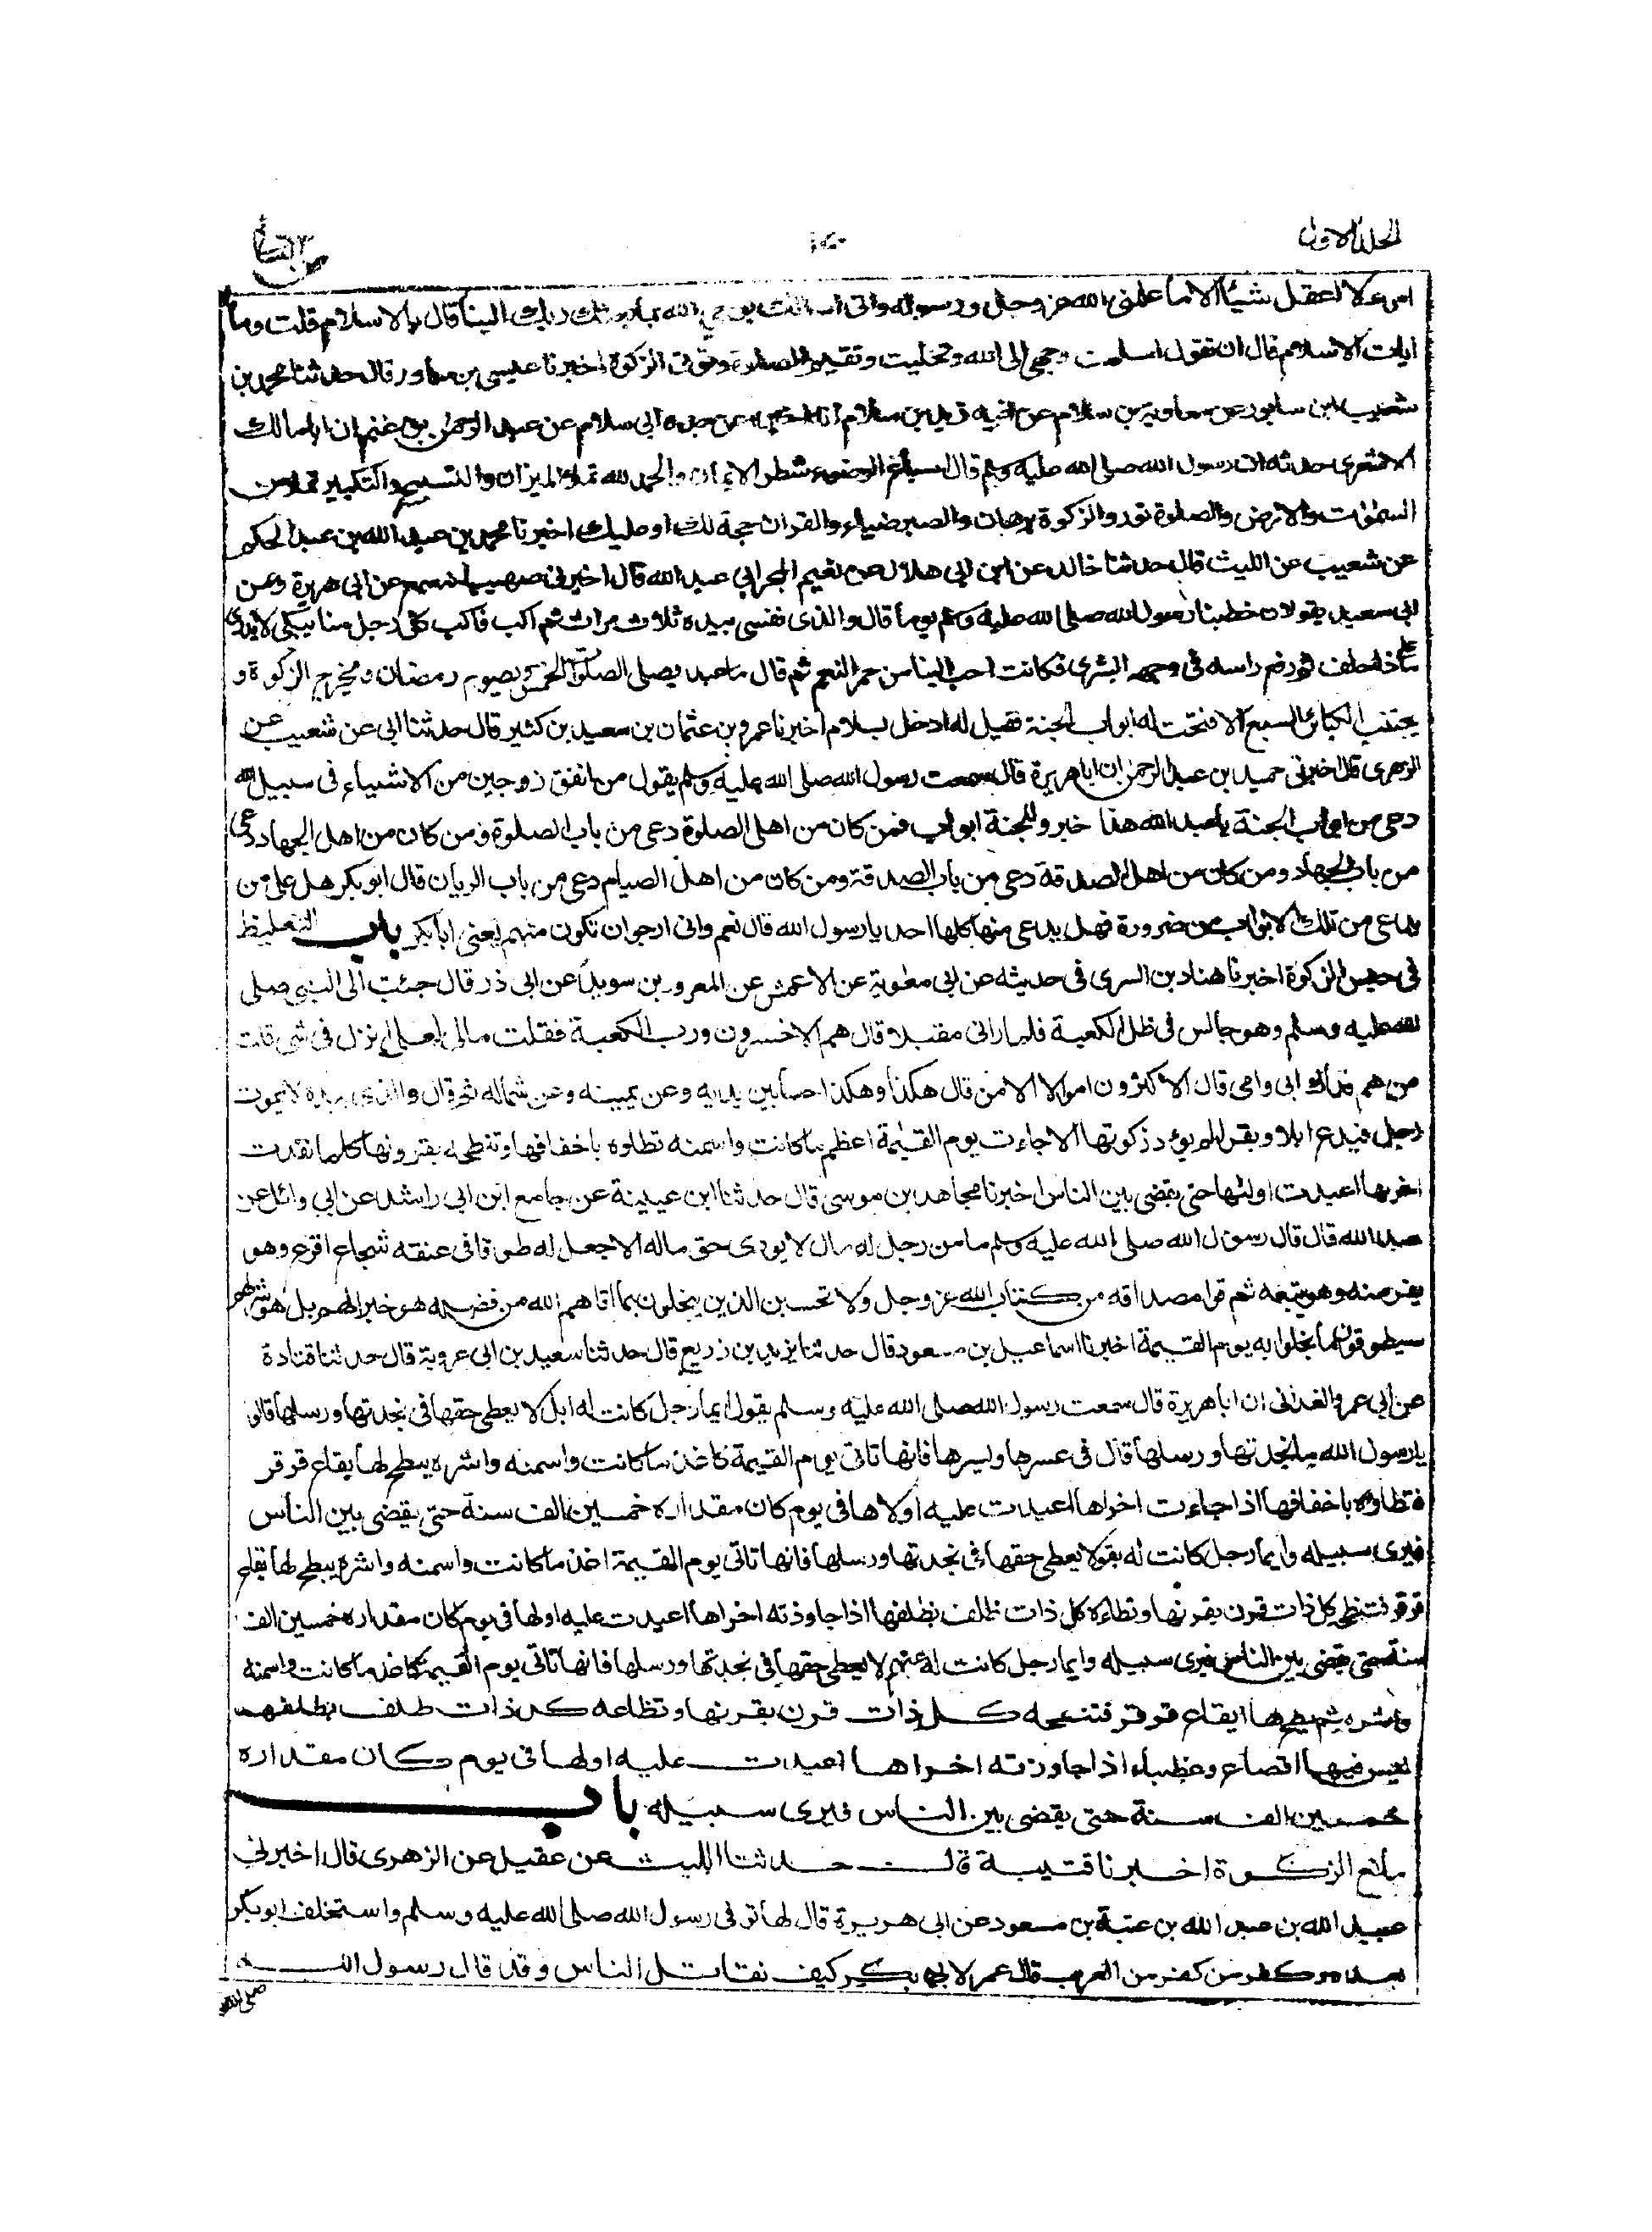 الجلد الاول
من النسائى
امرء لا اعقل شيئا الا ما علمنى الله عز وجل ورسوله وانى اسالك بوحى الله بما بعثك ربك الينا قال بالاسلام قلت وما
ايات الاسلام قال ان تقول اسلمت وجهى الى الله وتخليت وتقيم الصلوة وتؤتى الزكوة اخبرنا عيسى بن مساور قال حدثنا محمد بن
شعيب ابن سابور عن معاوية بن سلام عن اخيه زيد بن سلام انه اخبره عن جده ابى سلام عن عبد الرحمن بن غنم ان ابا مالك
الاشعرى حدثه ان رسول الله صلى الله عليه وسلم قال اسباغ الوضوء شطر الايمان والحمد لله تملا الميزان والتسبيح والتكبير تملا من
السموات والارض والصلوة نور والزكوة برهان والصبر ضياء والقران حجة لك او عليك اخبرنا محمد بن عبد الله بن عبد الحكم
عن شعيب عن الليث قال حدثنا خالد عن ابن ابى هلال عن نعيم المجمر ابى عبد الله قال اخبرنى صهيب انه سمع من ابى هريرة ومن
ابى سعيد يقولان خطبنا رسول الله صلى الله عليه وسلم يوما قال والذى نفسى بيده ثلاث مرات ثم اكب فاكب كل رجل منا يبكى لا يدرى
على ماذا حلف ثم رفع راسه فى وجهه البشرى فكانت احب الينا من حمر النعم ثم قال ما عبد يصلى الصلوات الخمس ويصوم رمضان ويخرج الزكوة و
يجتنب الكبائر السبع الا فتحت له ابواب الجنة فقيل له ادخل بسلام اخبرنا عمرو بن عثمان بن سعيد بن كثير قال حدثنا ابى عن شعيب عن
الزهرى قال اخبرنى حميد بن عبد الرحمن ان ابا هريرة قال سمعت رسول الله صلى الله عليه وسلم يقول من انفق زوجين من الاشياء فى سبيل الله
دعى من ابواب الجنة يا عبد الله هذا خير وللجنة ابواب فمن كان من اهل الصلوة دعى من باب الصلوة ومن كان من اهل الجهاد دعى
من باب الجهاد ومن كان من اهل الصدقة دعى من باب الصدقة ومن كان من اهل الصيام دعى من باب الريان قال ابو بكر هل على من
يدعى من تلك الابواب من ضرورة فهل يدعى منها كلها احد يا رسول الله قال نعم وانى ارجو ان تكون منهم يعنى ابا بكر باب التغليظ
فى حبس الزكوة اخبرنا هناد بن السرى فى حديثه عن ابى معوية عن الاعمش عن المعرور بن سويد عن ابى ذر قال جئت الى النبى صلى
الله عليه وسلم وهو جالس فى ظل الكعبة فلما رانى مقبلا قال هم الاخسرون ورب الكعبة فقلت مالى لعلى انزل فى شئ قلت
من هم فداك ابى وامى قال الاكثرون اموالا الا من قال هكذا وهكذا حسا بين يديه وعن يمينه وعن شماله ثم قال والذى بيده لا يموت
رجل فيدع ابلا او بقرا لم يؤد زكوتها الا جاءت يوم القيمة اعظم ما كانت واسمنه تطاوه باخفافها وتنطحه بقرونها كلما نفدت
اخرها اعيدت اولها حتى يقضى بين الناس اخبرنا مجاهد بن موسى قال حدثنا ابن عيينة عن جامع ابن ابى راشد عن ابى وائل عن
عبد الله قال قال رسول الله صلى الله عليه وسلم ما من رجل له مال لا يودى حق ماله الا جعل له طوقا فى عنقه شجاع اقرع وهو
يفر منه وهو يتبعه ثم قرا مصداقه من كتاب الله عز وجل ولا تحسبن الذين يبخلون بما اتاهم الله من فضله هو خير الهم بل هو شر لهم
سيطوقون ما بخلوا به يوم القيمة اخبرنا اسماعيل بن مسعود قال حدثنا يزيد بن زريع قال حدثنا سعيد بن ابى عروبة قال حدثنا قتادة
عن ابى عمرو الغدانى ان ابا هريرة قال سمعت رسول الله صلى الله عليه وسلم يقول ايما رجل كانت له ابل لا يعطى حقها فى نجدتها ورسلها قالوا
يا رسول الله ما نجدتها ورسلها قال فى عسرها ويسرها فانها تاتى يوم القيمة كاغذ ما كانت واسمنه واشره يبطح لها بقاع قرقر
فتطاوه باخفافها اذا جاءت اخراها اعيدت عليه اولاها فى يوم كان مقداره خمسين الف سنة حتى يقضى بين الناس
فيرى سبيله وايما رجل كانت له بقر لا يعطى حقها فى نجدتها ورسلها فانها تاتى يوم القيمة اغذ ما كانت واسمنه واشره يبطح لها بقاع
قرقر فتنطحه كل ذات قرن بقرنها وتطاءه كل ذات ظلف بظلفها اذا جاوزته اخراها اعيدت عليه اولها فى يوم كان مقداره خمسين الف
سنة حتى يقضى بين الناس فيرى سبيله وايما رجل كانت له غنم لا يعطى حقها فى نجدتها ورسلها فانها تاتى يوم القيمة كاغذ ما كانت واسمنه
واشره ثم يبطح لها بقاع قرقر فتنطحه كل ذات قرن بقرنها وتطاءه كل ذات ظلف بظلفها
ليس فيها عقصاء ولا عضباء اذا جاوزته اخراها اعيدت عليه اولها فى يوم كان مقداره
خمسين الف سنة حتى يقضى بين الناس فيرى سبيله باب
مانع الزكوة اخبرنا قتيبة قال حدثنا الليث عن عقيل عن الزهرى قال اخبرنى
عبيد الله بن عبد الله بن عتبة بن مسعود عن ابى هريرة قال لما توفى رسول الله صلى الله عليه وسلم واستخلف ابو بكر
بعده وكفر من كفر من العرب قال عمر لابى بكر كيف نقاتل الناس وقد قال رسول الله
صلى الله